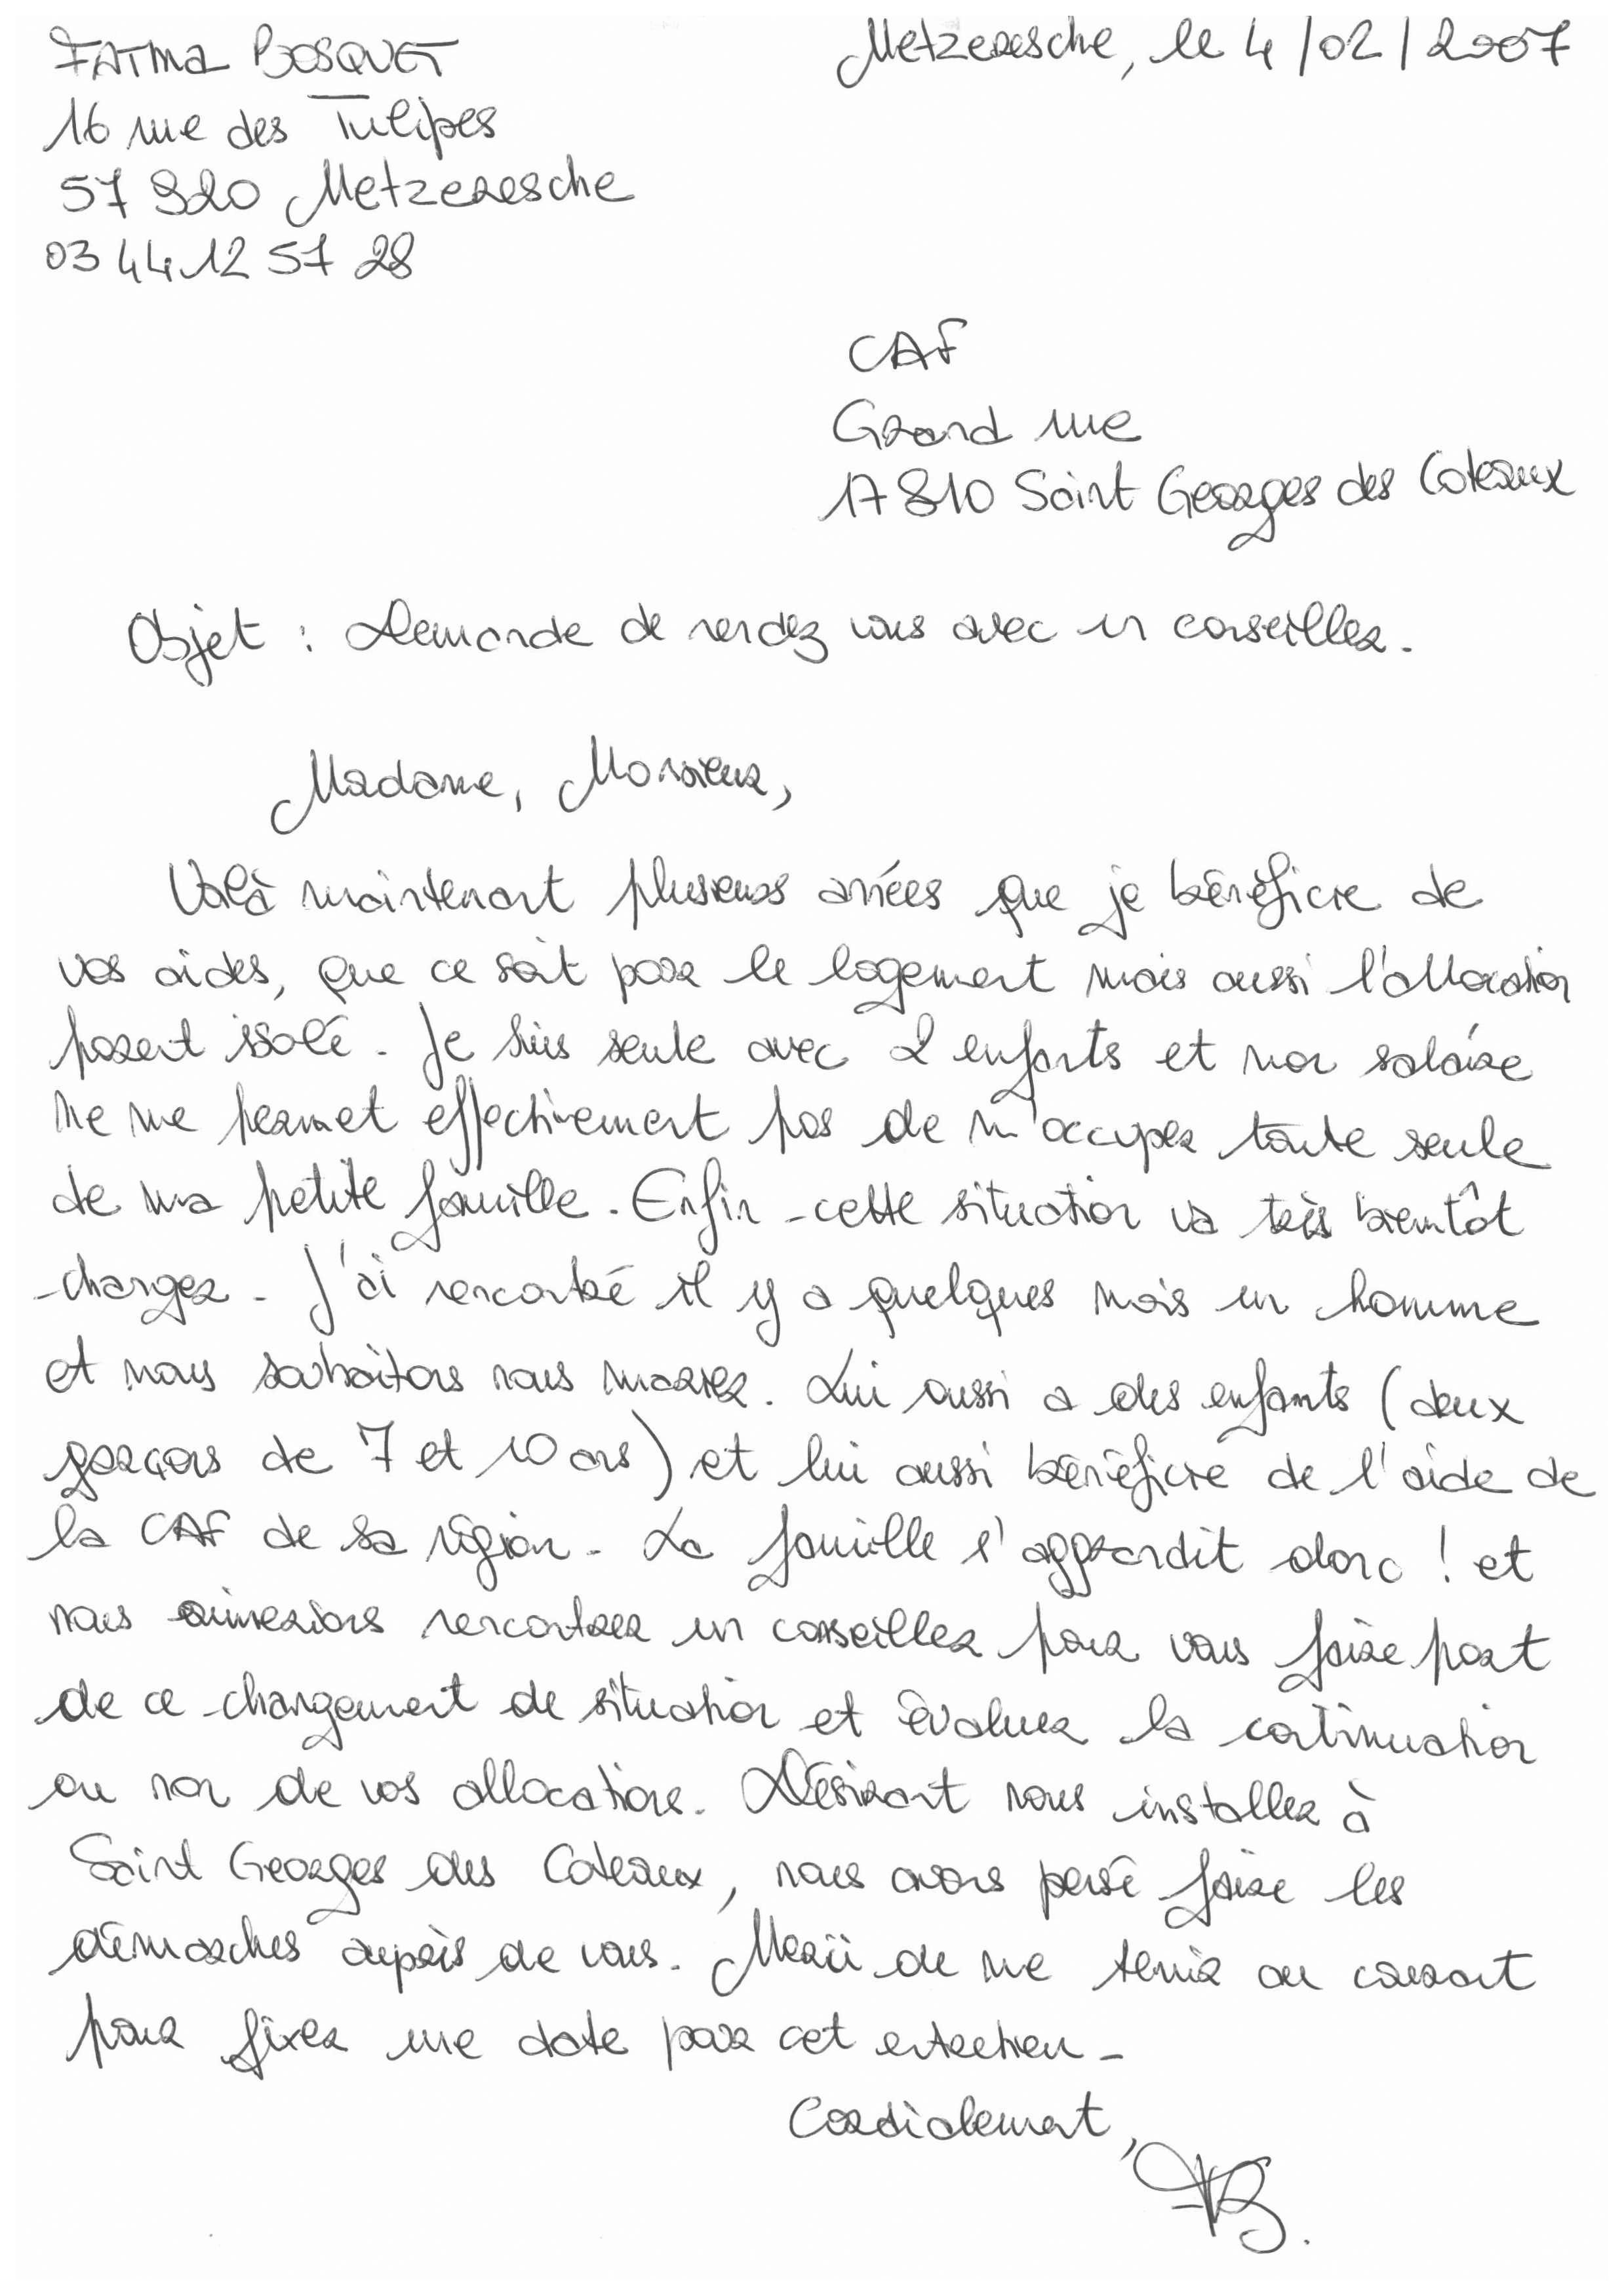 FATMA BOSQUET
Metzeresche, le 4/02/2007
16 rue des Tulipes
57 920 Metzeresche
03 44 12 57 28
CAF
Grand rue
17 810 Saint Georges des Coteaux
Objet : Demande de rendez vous avec un conseiller.
Madame, Monsieur,
Voilà maintenant plusieurs années que je bénéficie de
vos aides, que ce soit pour le logement mais aussi l'allocation
parent isolé. Je suis seule avec 2 enfants et mon salaire
ne me permet effectivement pas de m'occuper toute seule
de ma petite famille. Enfin cette situation va très bientôt
changer. J'ai rencontré il y a quelques mois un homme
et nous souhaitons nous marier. Lui aussi a des enfants (deux
garçons de 7 et 10 ans) et lui aussi bénéficie de l'aide de
la CAF de sa région. La famille s'aggrandit donc ! et
nous aimerions rencontrer un conseiller pour vous faire part
de ce changement de situation et évaluer la continuation
ou non de vos allocations. Désirant nous installer à
Saint Georges des Coteaux, nous avons pensé faire les
démarches auprès de vous. Merci de me tenir au courant
pour fixer une date pour cet entretien.
Cordialement,
FB.